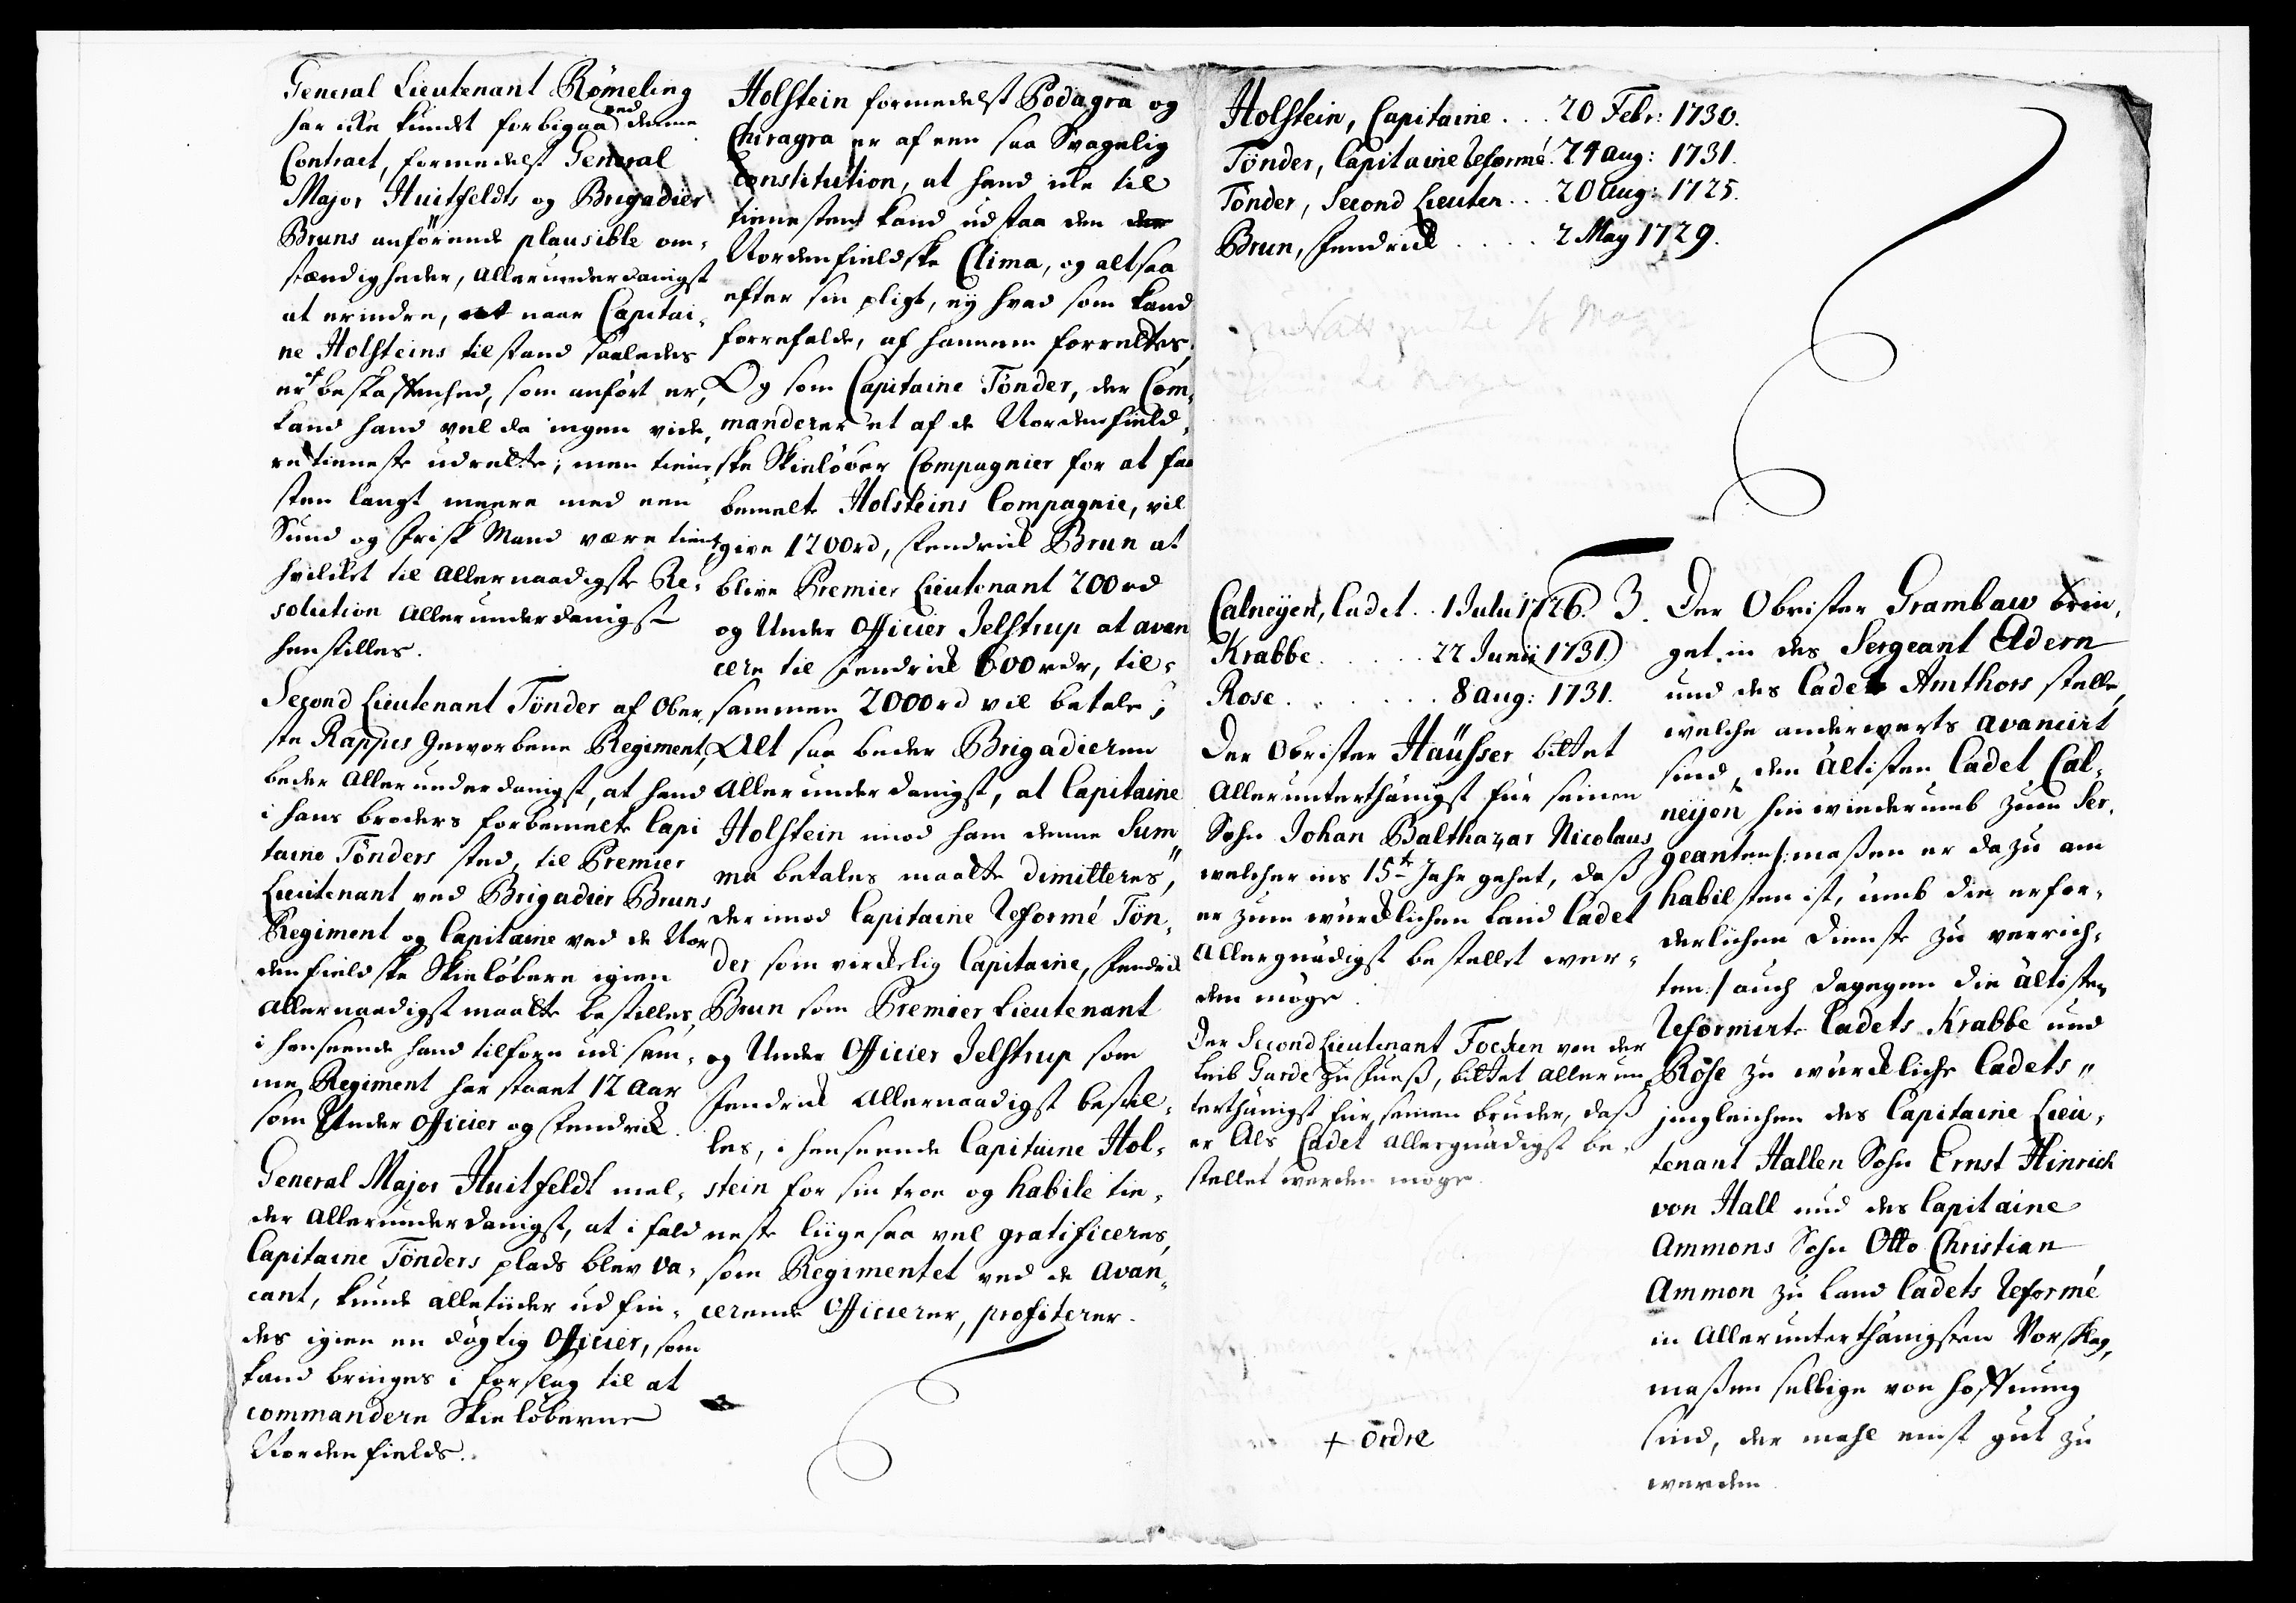 General Lieutenant Römeling
har icke kundet forbigaa ved denne
Contract, formedelst General
Major Huitfeldts og Brigadier
Bruns anförende plausible om-
stændigheder, allerunderdanigst
at erindre, at naar Capitai-
ne Holsteins tilstand saaledes
er beskaffenhed, som anfört er,
kand hand vel da ingen vide-
re tieneste udrette; men tiene-
sten langt meere med een
Sund og frisk Mand være tient,
hvilcket til allernaadigste Re-
solution allerunderdanigst
henstilles.
Second Lieutenant Tönder af Ober-
ste Rappes Geworbene Regiment,
beder allerunderdanigst, at hand
i hans broders forbemelte Capi
taine Tönders sted, til Premier
Lieutenant ved Brigadier Bruns
Regiment og Capitaine ved de Nor
denfieldske Skielöbere igien
allernaadigst maatte bestilles,
i henseende hand tilforn udi sam-
me Regiment har staaet 12 Aar
som Under Officier og Fendrick.
General Major Huitfeldt mel-
der allerunderdanigst, at i fald
Capitaine Tönders plads blev va-
cant, kunde alletiider udfin-
des igien en dögtig Officier, som
kand bringes i forslag til at
commandere Skielöberne
Nordenfields.
Holstein formedelst Podagra og
Chiragra er af een saa Svagelig
Constitution, at hand icke til
tienesten kand udstaa den
Nordenfieldske Clima, og altsaa
efter sin pligt, ey hvad som kand
forrefalde, af hannem forrettes;
Og som Capitaine Tönder, der Com-
manderer et af de Nordenfield-
ske Skielöber Compagnier for at faa
bemelte Holsteins Compagnie, vil
give 1200rd, Fendrick Brun at
blive Premier Lieutenant 200rd
og Under Officier Jelstrup at avan
cere til Fendrick 600rdr, til-
sammen 2000rd vil betale;
Alt saa beder Brigadieren
allerunderdanigst, at Capitaine
Holstein imod ham denne Sum-
ma betales maatte dimitteres,
der imod Capitaine Reformé Tön-
der som virckelig Capitaine, Fendrick
Brun som Premier Lieutenant
og Under Officier Jelstrup som
Fendrick allernaadigst bestil-
les, i henseende Capitaine Hol-
stein for sin troe og habile tie-
neste liigesaa vel gratificeres,
som Regimentet ved de avan-
cerende Officierer, profiterer.
Holstein, Capitaine . . . 20 Febr: 1730.
Tönder, Capitaine Reformé. 24 Aug: 1731.
Tönder, Second Lieuten . . . 20 Aug: 1725.
Brun, Fendrick . . . . . 2 May 1729.
Calneyen, Cadet . . 1 Julii 1726.
Krabbe . . . . . 22 Junii 1731.
Rose . . . . . . . 8 Aug: 1731.
Der Obrister Häusser bittet
Allerunterthänigst für seinen
Sohn Johan Balthazar Nicolaus
welcher ins 15t Jahr gehet, daß
er zum würcklichen Land Cadet
Allergnädigst bestellet wer-
den möge.
Der Second Lieutenant Focken von der
Leib Garde zu Fueß, bittet allerun
terthänigst für seinen bruder, daß
er Als Cadet allergnädigst be-
stellet werden möge.
+ ordre
3. Der Obrister Grambow brin-
get in des Sergeant Adern
und des Cadet Amthors stelle,
welche anderwerts avancirt
sind, den ältisten Cadet Cal-
neyen hinwiederumb zum Ser-
geanten /: maßen er dazu am
habilsten ist, umb die erfor-
derlichen Dienste zu verrich-
ten :/ auch dagegen die ältisten
Reformirte Cadets Krabbe und
Röse zu würckliche Cadets
jngleichen des Capitaine Lieu-
tenant Hallen Sohn Ernst Hinrich
von Hall und des Capitaine
Ammons Sohn Otto Christian
Ammon zu Land Cadets Reformé
in Allerunterthänigsten Vorschlag,
maßen selbige von Hoffnung
sind, der mahl einst gut zu
werden.